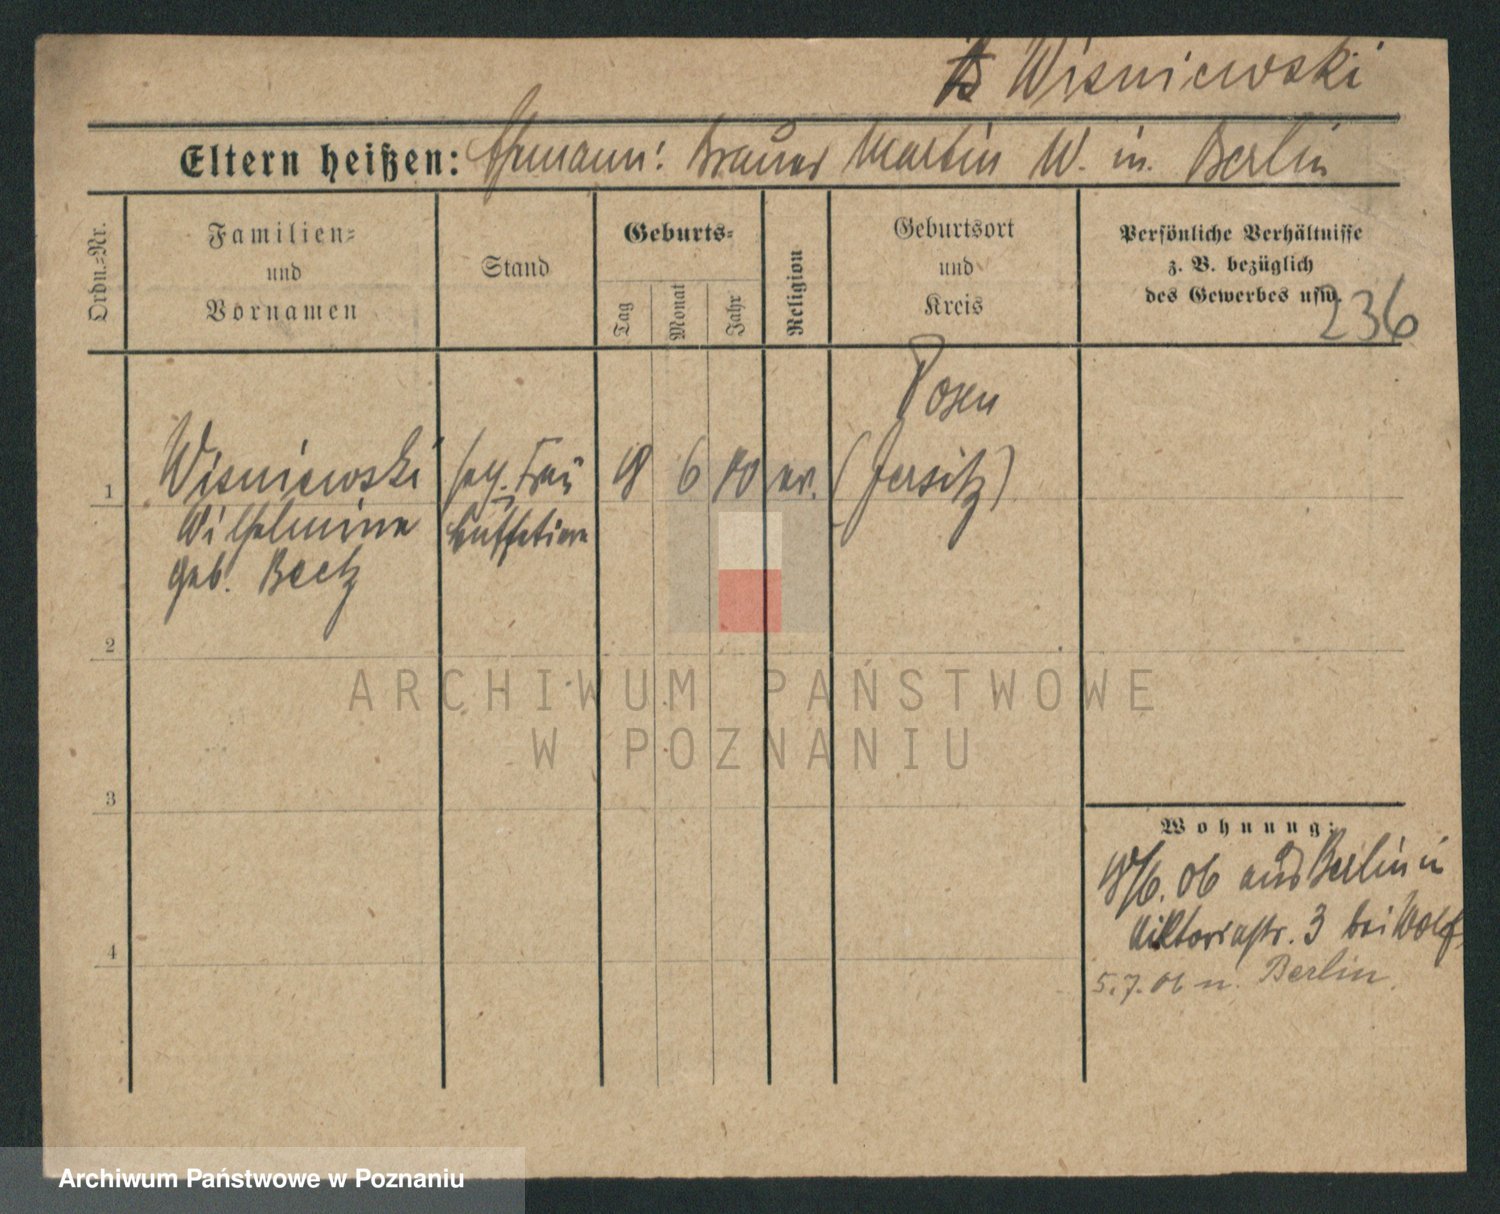 Wisniewski
Eltern heißen: Ehemann: Brauer Martin W. in Berlin
Ordn.-Nr.
Familien-
und
Vornamen
Stand
Geburts-
Tag
Monat
Jahr
Religion
Geburtsort
und
Kreis
Persönliche Verhältnisse
z. B. bezüglich
des Gewerbes usw.
236
Posen
1 Wisniewski gesch. Frau 18 6 80 ev. (Jersitz)
Wilhelmine Buffetiere
geb. Beetz
2
3
4
Wohnung:
18/6. 06 aus Berlin
Viktoriastr. 3 bei Wolf
5.7.06 n. Berlin.
ARCHIWUM PAŃSTWOWE
W POZNANIU
Archiwum Państwowe w Poznaniu